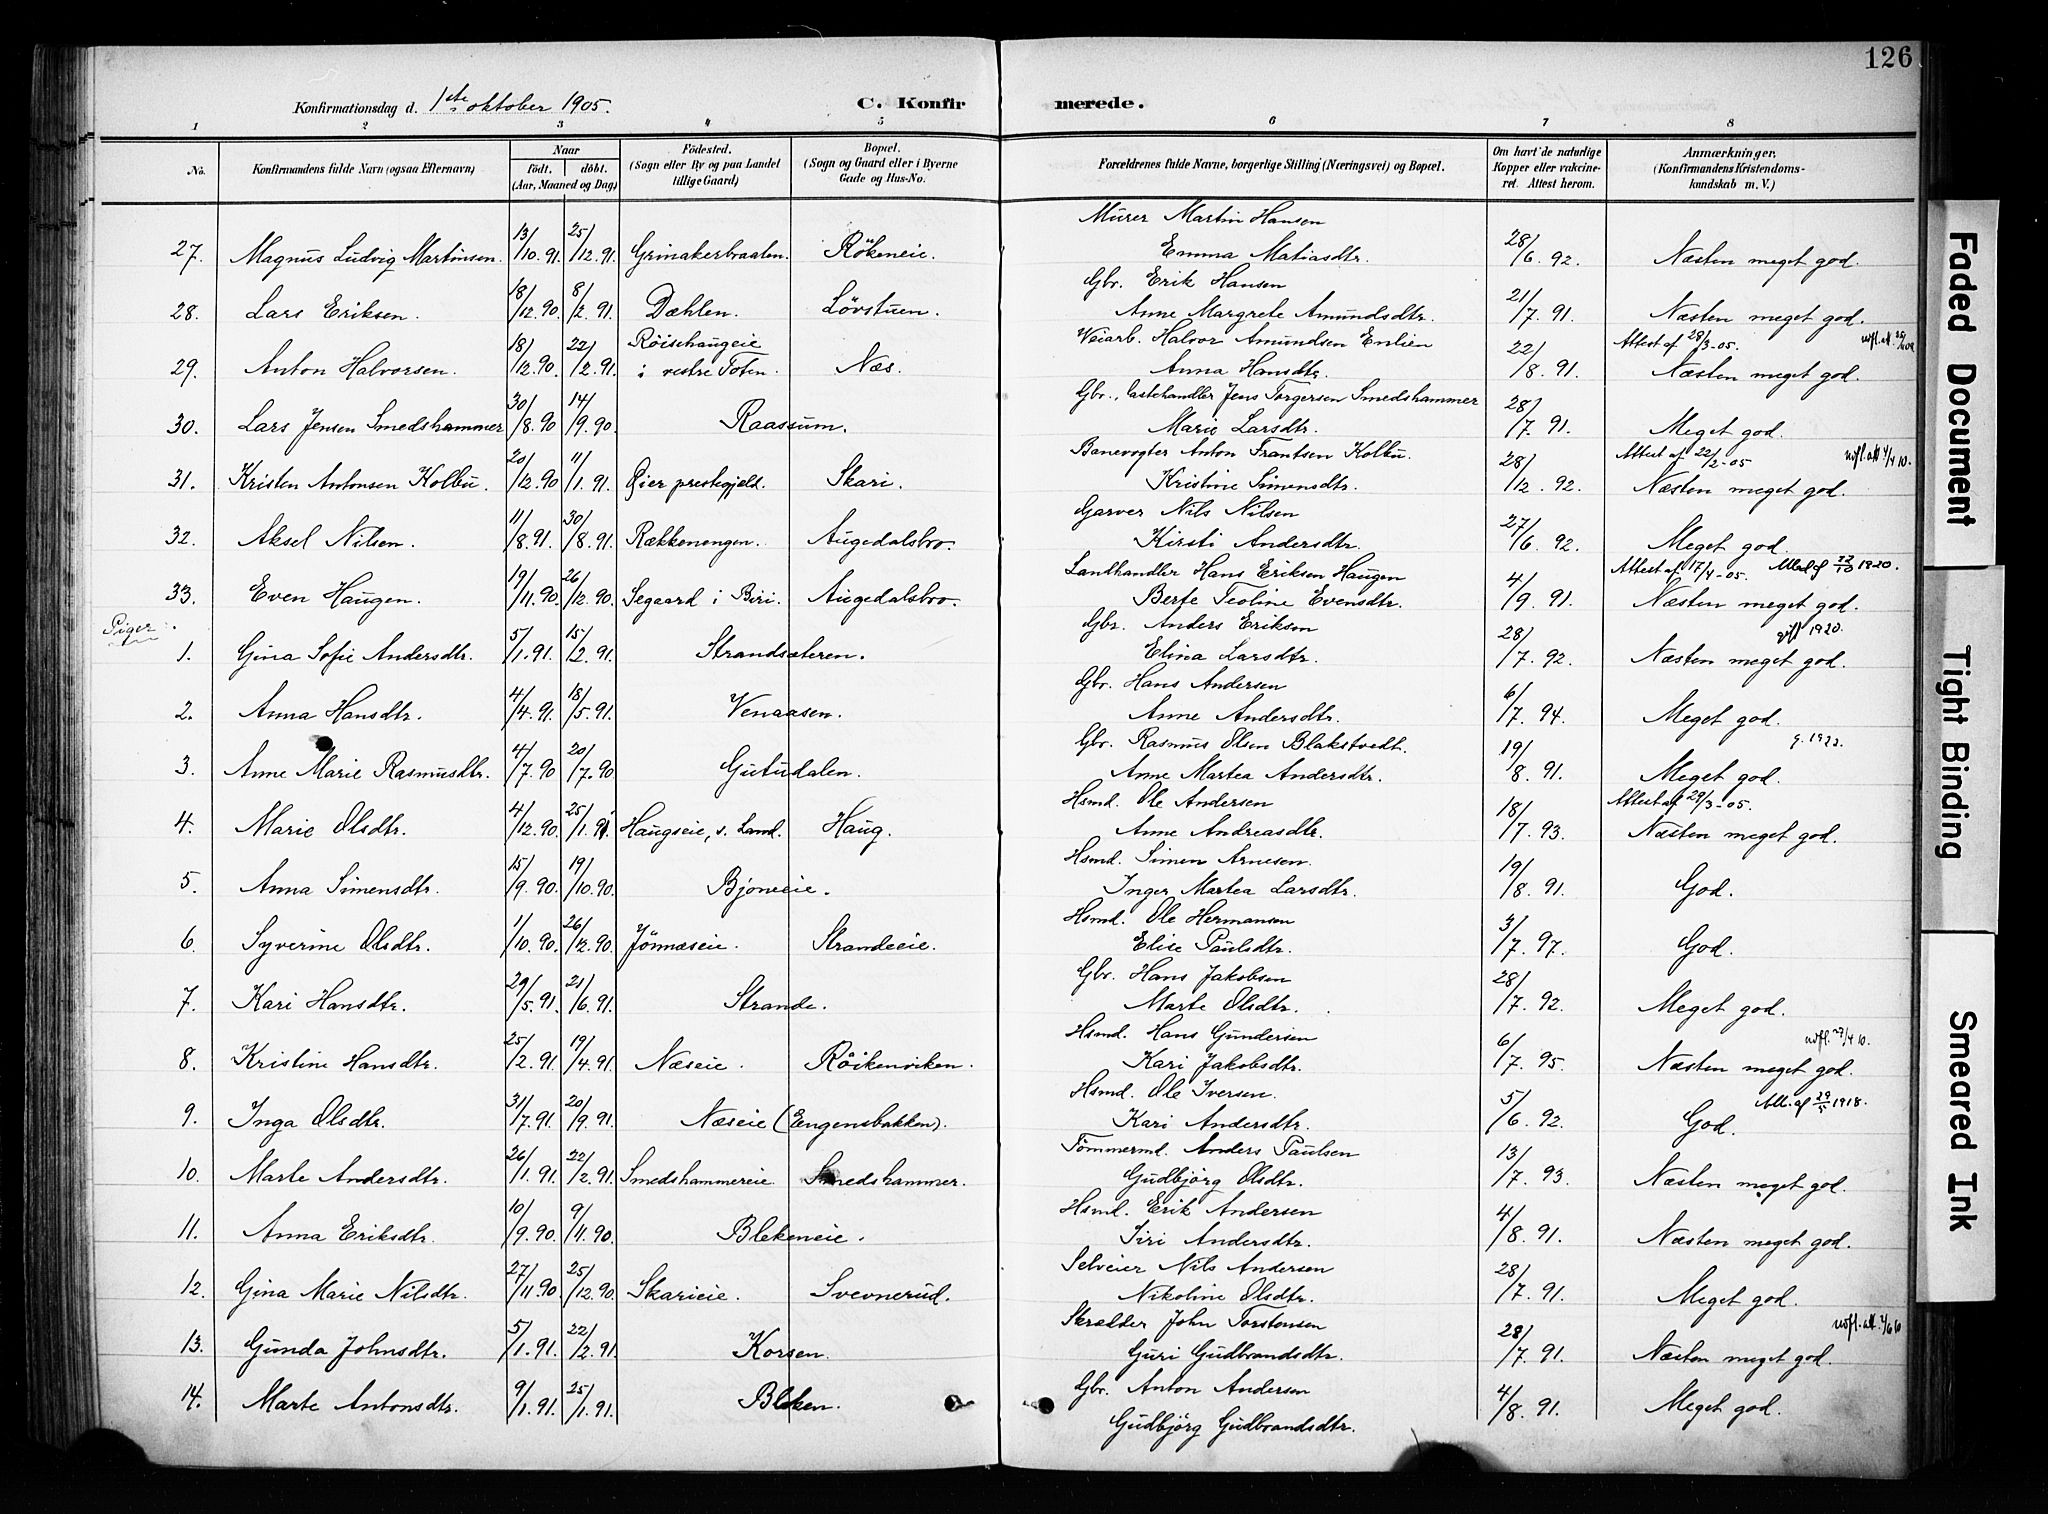 126
Konfirmationsdag d. 1ste oktober 1905.
C. Konfirmerede.
1 2 3 4 5 6 7 8
No. Konfirmandens fulde Navn (ogsaa Efternavn) Naar født. døbt. (Aar, Maaned og Dag) Fødested. (Sogn eller By og paa Landet tillige Gaard) Bopæl. (Sogn og Gaard eller i Byerne Gade og Hus-No. Forældrenes fulde Navne, borgerlige Stilling (Næringsvei) og Bopæl. Om havt de naturlige Kopper eller vakcineret. Attest herom. Anmærkninger. (Konfirmandens Kristendomskundskab m. V.)
Murer Martin Hansen
27. Magnus Ludvig Martinsen. 13/10.91. 25/12.91. Grinakerbraaten. Rökeneie. Emma Matiasdtr. 28/6. 92. Næsten meget god.
Gbr. Erik Hansen
28. Lars Eriksen. 18/12.90. 8/2.91. Dæhlen. Lövstuen. Anne Margrete Amundsdtr. 21/7. 91. Næsten meget god.
Veiarb. Halvor Amundsen Enlien Attest af 28/3-05.
29. Anton Halvorsen. 18/12.90. 22/2.91. Röischaugeie i vestre Toten. Næs. Anna Hansdtr. 22/8. 91. Næsten meget god.
Gbr., Lastehandler Jens Torgersen Smedshammer
30. Lars Jensen Smedshammer 30/8.90 14/9.90. Raassum. Marie Larsdtr. 28/7. 91. Meget god.
Banevogter Anton Frantsen Kolbu. Attest af 22/2-05 udfl. att 4/4 10.
31. Kristen Antonsen Kolbu. 20/12.90 11/1.91. Øier prestegjeld. Skari. Kristine Simensdtr. 28/12. 92. Næsten meget god.
Garver Nils Nilsen
32. Aksel Nilsen. 11/8.91. 30/8.91. Rækkenengen. Augedalsbro. Kirsti Andersdtr. 27/6. 92. Meget god.
Landhandler Hans Eriksen Haugen Attest af 17/4-05. 1920.
33. Even Haugen. 19/11.90. 26/12.90. Segaard i Biri. Augedalsbro. Berte Teoline Evensdtr. 4/9. 91. Næsten meget god.
Piger.
Gbr. Anders Eriksen gift 1920.
1. Gina Sofie Andersdtr. 5/1.91. 15/2.91. Strandsæteren. Elina Larsdtr. 28/7. 92. Næsten meget god.
Gbr. Hans Andersen
2. Anna Hansdtr. 4/4.91. 18/5.91. Venaasen. Anne Andersdtr. 6/7. 94. Meget god.
Gbr. Rasmus Olsen Blakstvedt. g. 1922.
3. Anne Marie Rasmusdtr. 4/7.90 20/7.90 Gutudalen. Anne Martea Andersdtr. 19/8. 91. Meget god.
Hsmd. Ole Andersen Attest af 29/3-05.
4. Marie Olsdtr. 4/12.90. 25/1.91. Haugseie, s. Land. Haug. Anne Andreasdtr. 18/7. 93. Næsten meget god.
Hsmd. Simen Arnesen.
5. Anna Simensdtr. 15/9.90. 19/10.90. Bjoneeie. Inger Martea Larsdtr. 19/8. 91. God.
Hsmd. Ole Hermansen
6. Syverine Olsdtr. 1/10.90. 26/12.90. Jönnæseie. Strandeeie. Elise Paulsdtr. 3/7. 97. God.
Gbr. Hans Jakobsen
7. Kari Hansdtr. 29/5.91. 21/6.91. Strande. Marte Olsdtr. 28/7. 92. Meget god.
Hsmd. Hans Gundersen udfl. 27/4 10.
8. Kristine Hansdtr. 25/2.91. 19/4.91. Næseie. Röikenviken. Kari Jakobsdtr. 6/7. 95. Næsten meget god.
Hsmd. Ole Iversen. Att. af 29/5 1918.
9. Inga Olsdtr. 31/7.91. 20/9.91. Næseie (Engensbakken). Kari Andersdtr. 5/6. 92. God.
Tömmermd. Anders Paulsen
10. Marte Andersdtr. 26/1.91. 22/2.91. Smedshammereie Smedshammer. Gudbjörg Olsdtr. 13/7. 93. Næsten meget god.
Hsmd. Erik Andersen
11. Anna Eriksdtr. 10/9.90. 9/11.90. Blekeneie. Siri Andersdtr. 4/8. 91. Næsten meget god.
Selveier Nils Andersen
12. Gina Marie Nilsdtr. 27/11.90. 25/12.90. Skarieie. Svevnerud. Nikoline Olsdtr. 28/7. 91. Meget god.
Skrædder John Torstensen udfl. att. 4/6 10
13. Gunda Johnsdtr. 5/1.91. 22/2.91. Korsen. Guri Gudbrandsdtr. 28/7. 91. Næsten meget god.
Gbr. Anton Andersen
14. Marte Antonsdtr. 9/1.91. 25/1.91. Bleken. Gudbjörg Gudbrandsdtr. 4/8. 91. Meget god.
Faded Document
Tight Binding
Smeared Ink